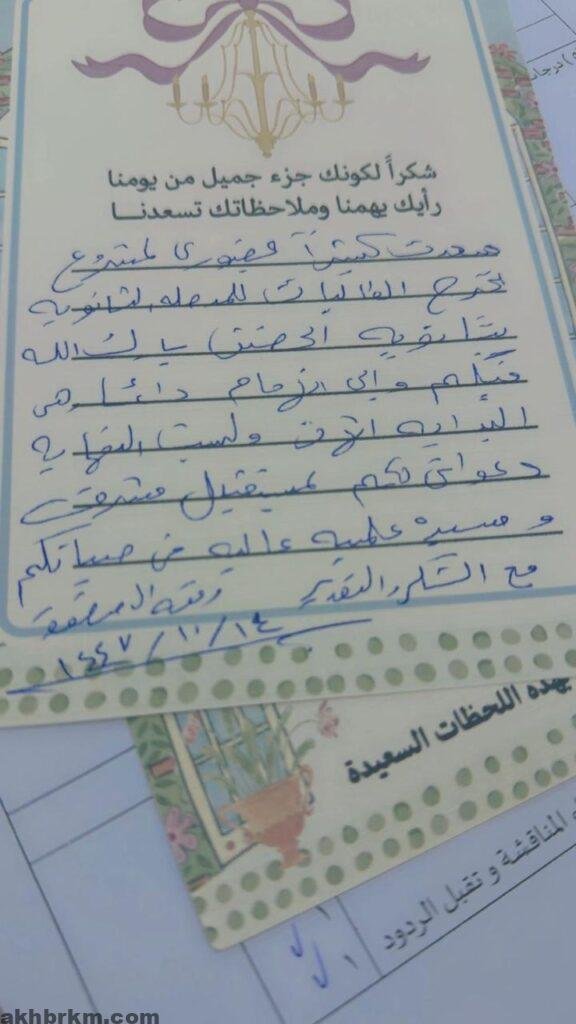 درجات
شكراً لكونك جزء جميل من يومنا
رأيك يهمنا وملاحظاتك تسعدنا
سعدت كثيراً بحضورى لمشروع
تخرج الطالبات للمرحلة الثانوية
بثانوية بارك الله
فيكم وإلى الأمام دائماً هى
البداية الآن وليست النهاية
دعواتى لكم لمستقبل مشرق
ومسيرة علمية عالية فى حياتكم
مع الشكر والتقدير
١٤٤٧/١٠/١٤
بهذه اللحظات السعيدة
المناقشة و تقبل الردود
١
١
akhbrkm.com